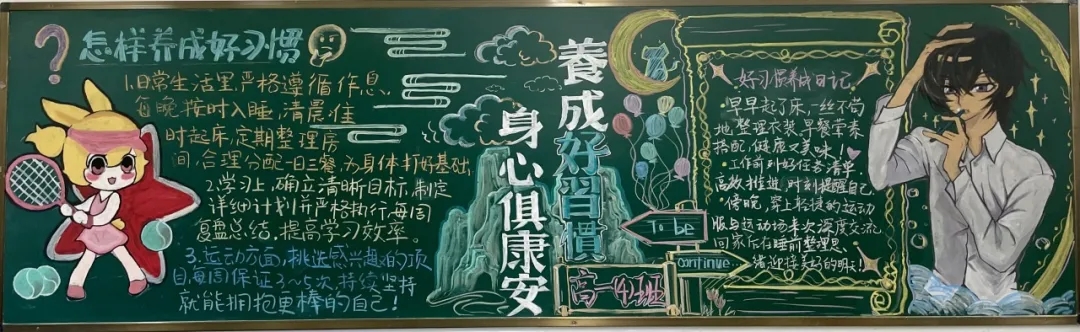 怎样养成好习惯
1.日常生活里,严格遵循作息
每晚按时入睡,清晨准
时起床,定期整理房
间,合理分配一日三餐,为身体打好基础
2.学习上,确立清晰目标,制定
详细计划并严格执行,每周
复盘总结,提高学习效率。
3.运动方面,挑选感兴趣的项
目,每周保证3~5次,持续坚持
就能拥抱更棒的自己!
養成好習慣
身心俱康安
To be
continue...
高一(4)班
好习惯养成日记
早早起了床,一丝不苟
地整理衣装,早餐荤素
搭配,健康又美味!
·工作前列好任务清单
高效推进,时刻提醒自己
·傍晚,穿上轻捷的运动
服与运动场来次深度交流
回家后在睡前整理思
绪,迎接美好的明天!